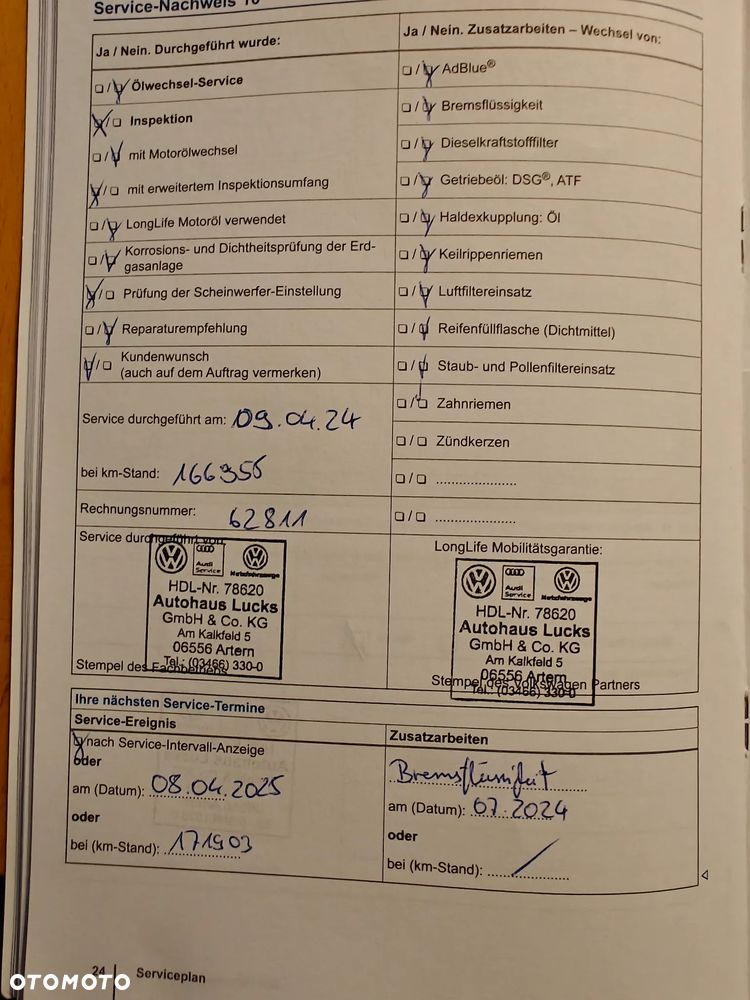 Service-Nachweis 10
Ja / Nein. Durchgeführt wurde:
Ja / Nein. Zusatzarbeiten – Wechsel von:
Ölwechsel-Service
Inspektion
mit Motorölwechsel
mit erweitertem Inspektionsumfang
LongLife Motoröl verwendet
Korrosions- und Dichtheitsprüfung der Erd-
gasanlage
Prüfung der Scheinwerfer-Einstellung
Reparaturempfehlung
Kundenwunsch
(auch auf dem Auftrag vermerken)
AdBlue®
Bremsflüssigkeit
Dieselkraftstofffilter
Getriebeöl: DSG®, ATF
Haldexkupplung: Öl
Keilrippenriemen
Luftfiltereinsatz
Reifenfüllflasche (Dichtmittel)
Staub- und Pollenfiltereinsatz
Zahnriemen
Zündkerzen
Service durchgeführt am: 09.04.24
bei km-Stand: 166356
Rechnungsnummer: 62811
Service durchgeführt von:
Audi
Service
Nutzfahrzeuge
HDL-Nr. 78620
Autohaus Lucks
GmbH & Co. KG
Am Kalkfeld 5
06556 Artern
Tel.: (03466) 330-0
Stempel des Fachbetriebs
LongLife Mobilitätsgarantie:
Audi
Service
Nutzfahrzeuge
HDL-Nr. 78620
Autohaus Lucks
GmbH & Co. KG
Am Kalkfeld 5
06556 Artern
Tel.: (03466) 330-0
Stempel des Volkswagen Partners
Ihre nächsten Service-Termine
Service-Ereignis
nach Service-Intervall-Anzeige
oder
am (Datum): 08.04.2025
oder
bei (km-Stand): 171903
Zusatzarbeiten
am (Datum): 07.2024
oder
bei (km-Stand):
24
Serviceplan
OTOMOTO